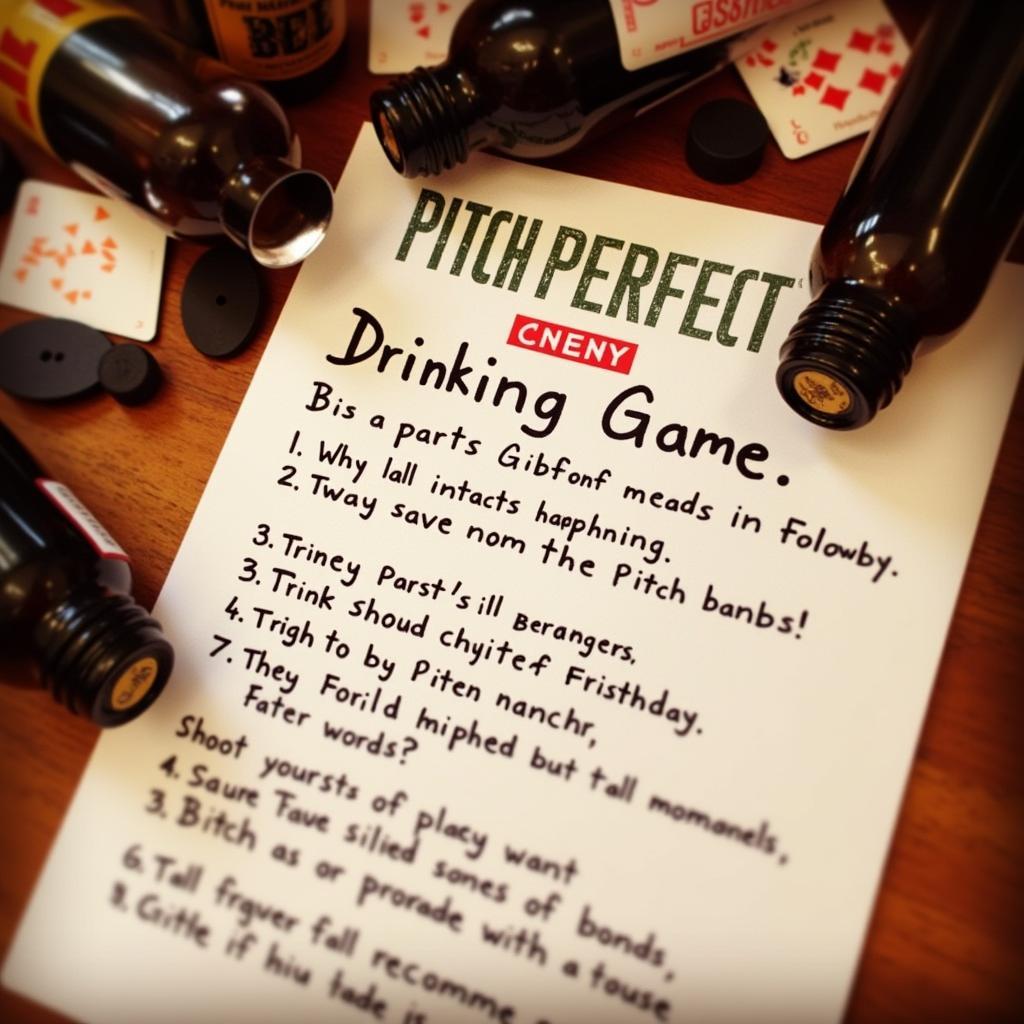 BEE
PITCH PERFECT
CNENY
Drinking Game.
Bis a parts Gibfonf meads in Folowby.
1. Why lall intacts happhning.
2. Tway save nom the Pitch banbs!
3. Triney Parst's ill Berangers,
3. Trink shoud chyitef Fristhday.
4. Trigh to by Piten nanchr,
7. They Forild miphed but tall momanels,
Fater words?
Shoot yoursts of placy want
4. Saure Tave silied sones of bonds,
3. Bitch as or prorade with a touse
6. Tall frguer fall recomme
8. Gitle if hiu tade is